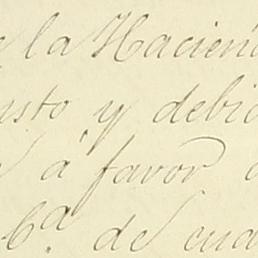 la Hacien
usto y debi
á favor
C.ª de cua